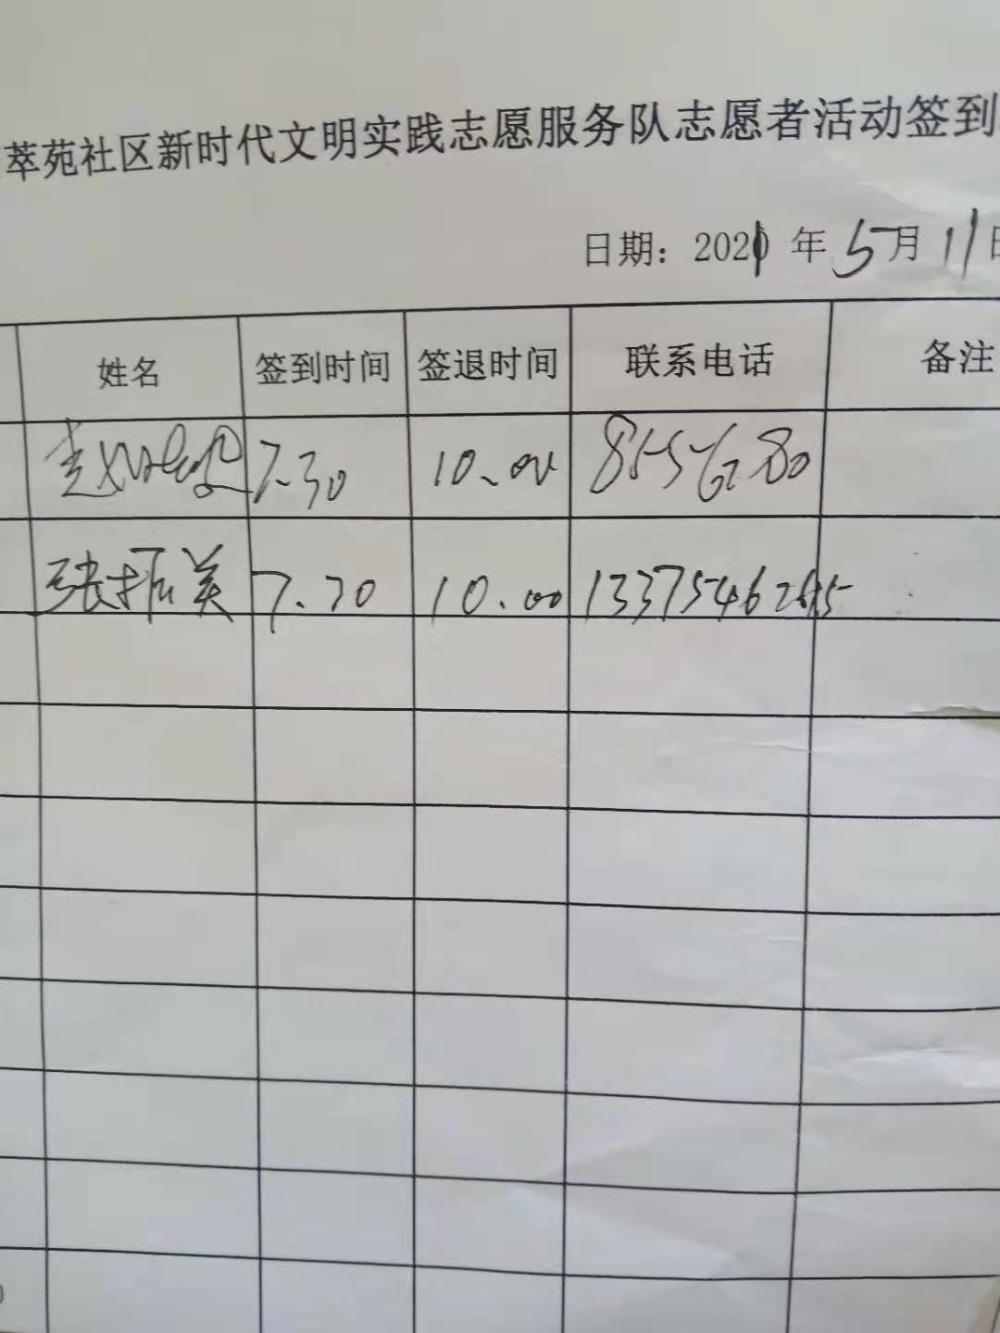 萃苑社区新时代文明实践志愿服务队志愿者活动签到
日期：2021年5月11日
姓名 签到时间 签退时间 联系电话 备注
7.30 10.00 81556280
张振美 7.30 10.00